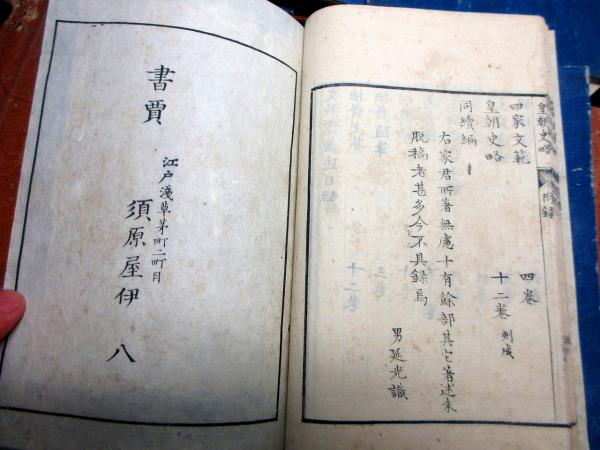 皇朝史略 附録
四家文範 四巻
皇朝史略 十二巻 刻成
同續編
右家君所著無慮十有餘部其它著述未
脱稿者甚多今不具録焉
男延光識
書賈
江戸淺草茅町二町目
須原屋伊八